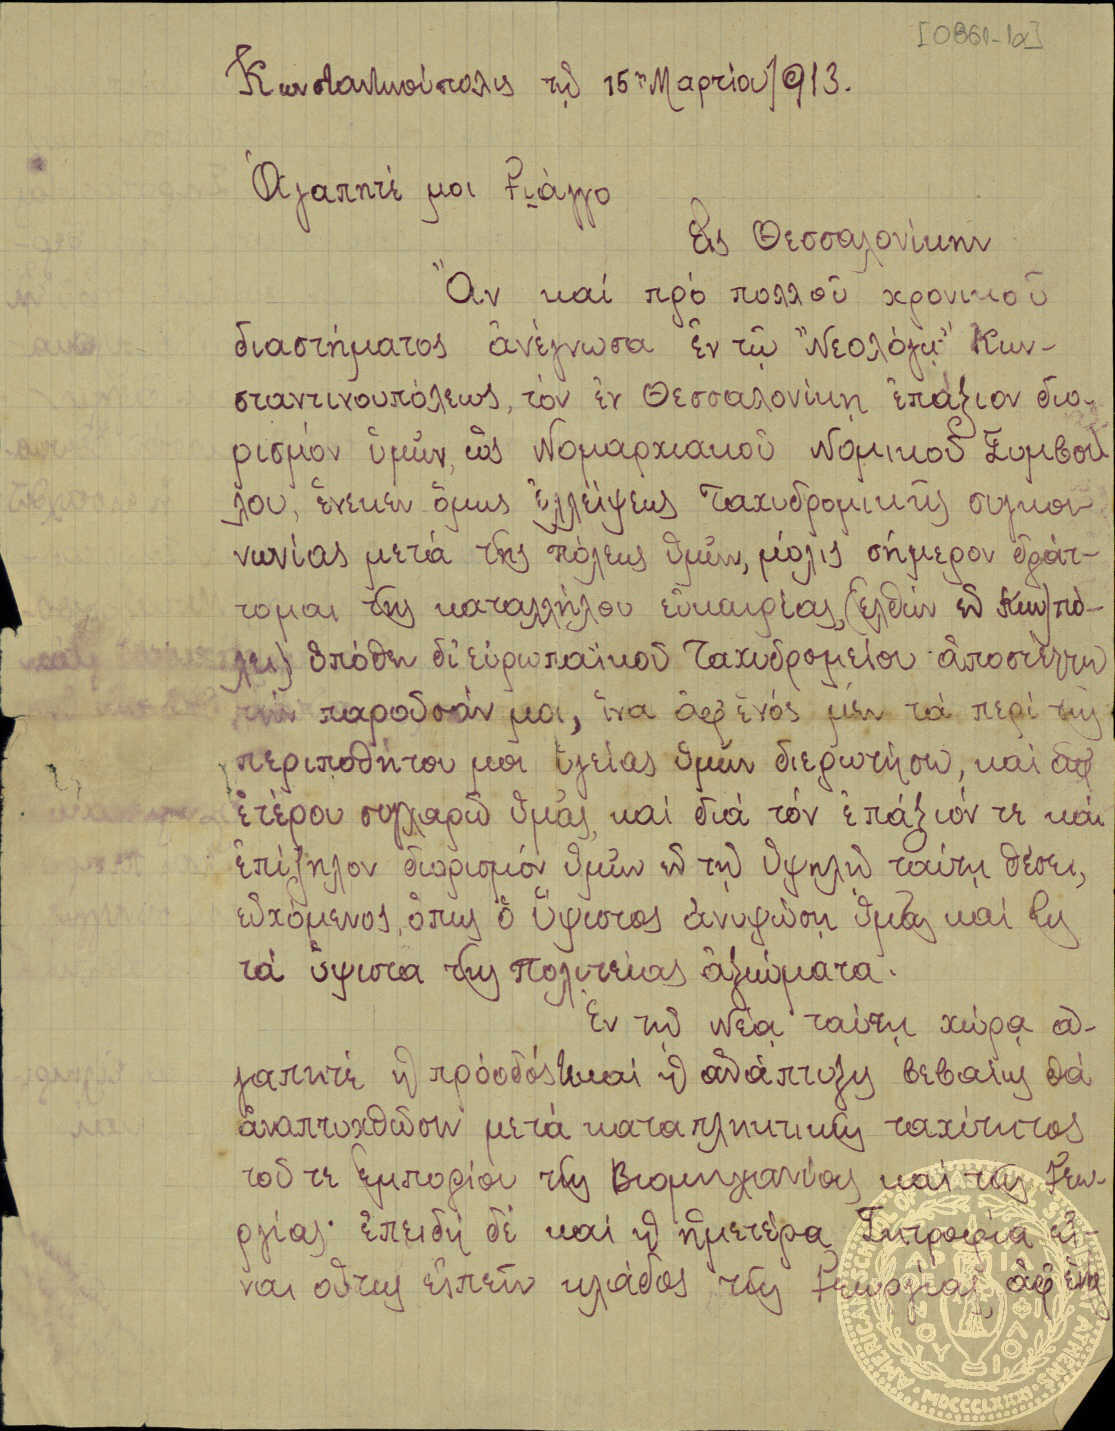 [0861-1α]
Κωνσταντινούπολις τῇ 15ῃ Μαρτίου/913.
Ἀγαπητέ μοι Γιάγγο
Εἰς Θεσσαλονίκην
Ἂν καί πρό πολλοῦ χρονικοῦ
διαστήματος ἀνέγνωσα ἐν τῷ "Νεολόγῳ" Κων-
σταντινουπόλεως, τόν ἐν Θεσσαλονίκῃ ἐπάξιον διο-
ρισμόν ὑμῶν, ὡς Νομαρχιακοῦ Νομικοῦ Συμβού
λου, ἕνεκεν ὅμως ἐλλείψεως ταχυδρομικῆς συγκοι-
νωνίας μετά τῆς πόλεως ὑμῶν, μόλις σήμερον δράτ-
τομαι τῆς καταλλήλου εὐκαιρίας, (ἐλθών ἐν Κων)πό-
λει) ὁπόθεν δι' εὐρωπαϊκοῦ ταχυδρομείου ἀποστέλλω
τήν παροῦσάν μοι, ἵνα ἀφ' ἑνός μέν τά περί τῆς
περιποθήτου μοι ὑγείας ὑμῶν διερωτήσω, καί ἀφ'
ἑτέρου συγχαρῶ ὑμᾶς καί διά τόν ἐπάξιόν τε καί
ἐπίζηλον διορισμόν ὑμῶν ἐν τῇ ὑψηλῇ ταύτῃ θέσει,
εὐχόμενος, ὅπως ὁ ὕψιστος ἀνυψώσῃ ὑμᾶς καί εἰς
τά ὕψιστα τῆς Πολιτείας ἀξιώματα.
Ἐν τῇ νέᾳ ταύτῃ χώρᾳ ἀ-
γαπητέ ἡ πρόοδός καί ἡ ἀνάπτυξις βεβαίως θά
ἀναπτυχθῶσιν μετά καταπληκτικῆς ταχύτητος
τοῦ τε Ἐμπορίου τῆς Βιομηχανίας καί τῆς Γεωρ-
ργίας· ἐπειδή δέ καί ἡ ἡμετέρα Σηροτροφία εἶ-
ναι οὕτως εἰπεῖν κλάδος τῆς Γεωργίας, ἀφ' ἑνός